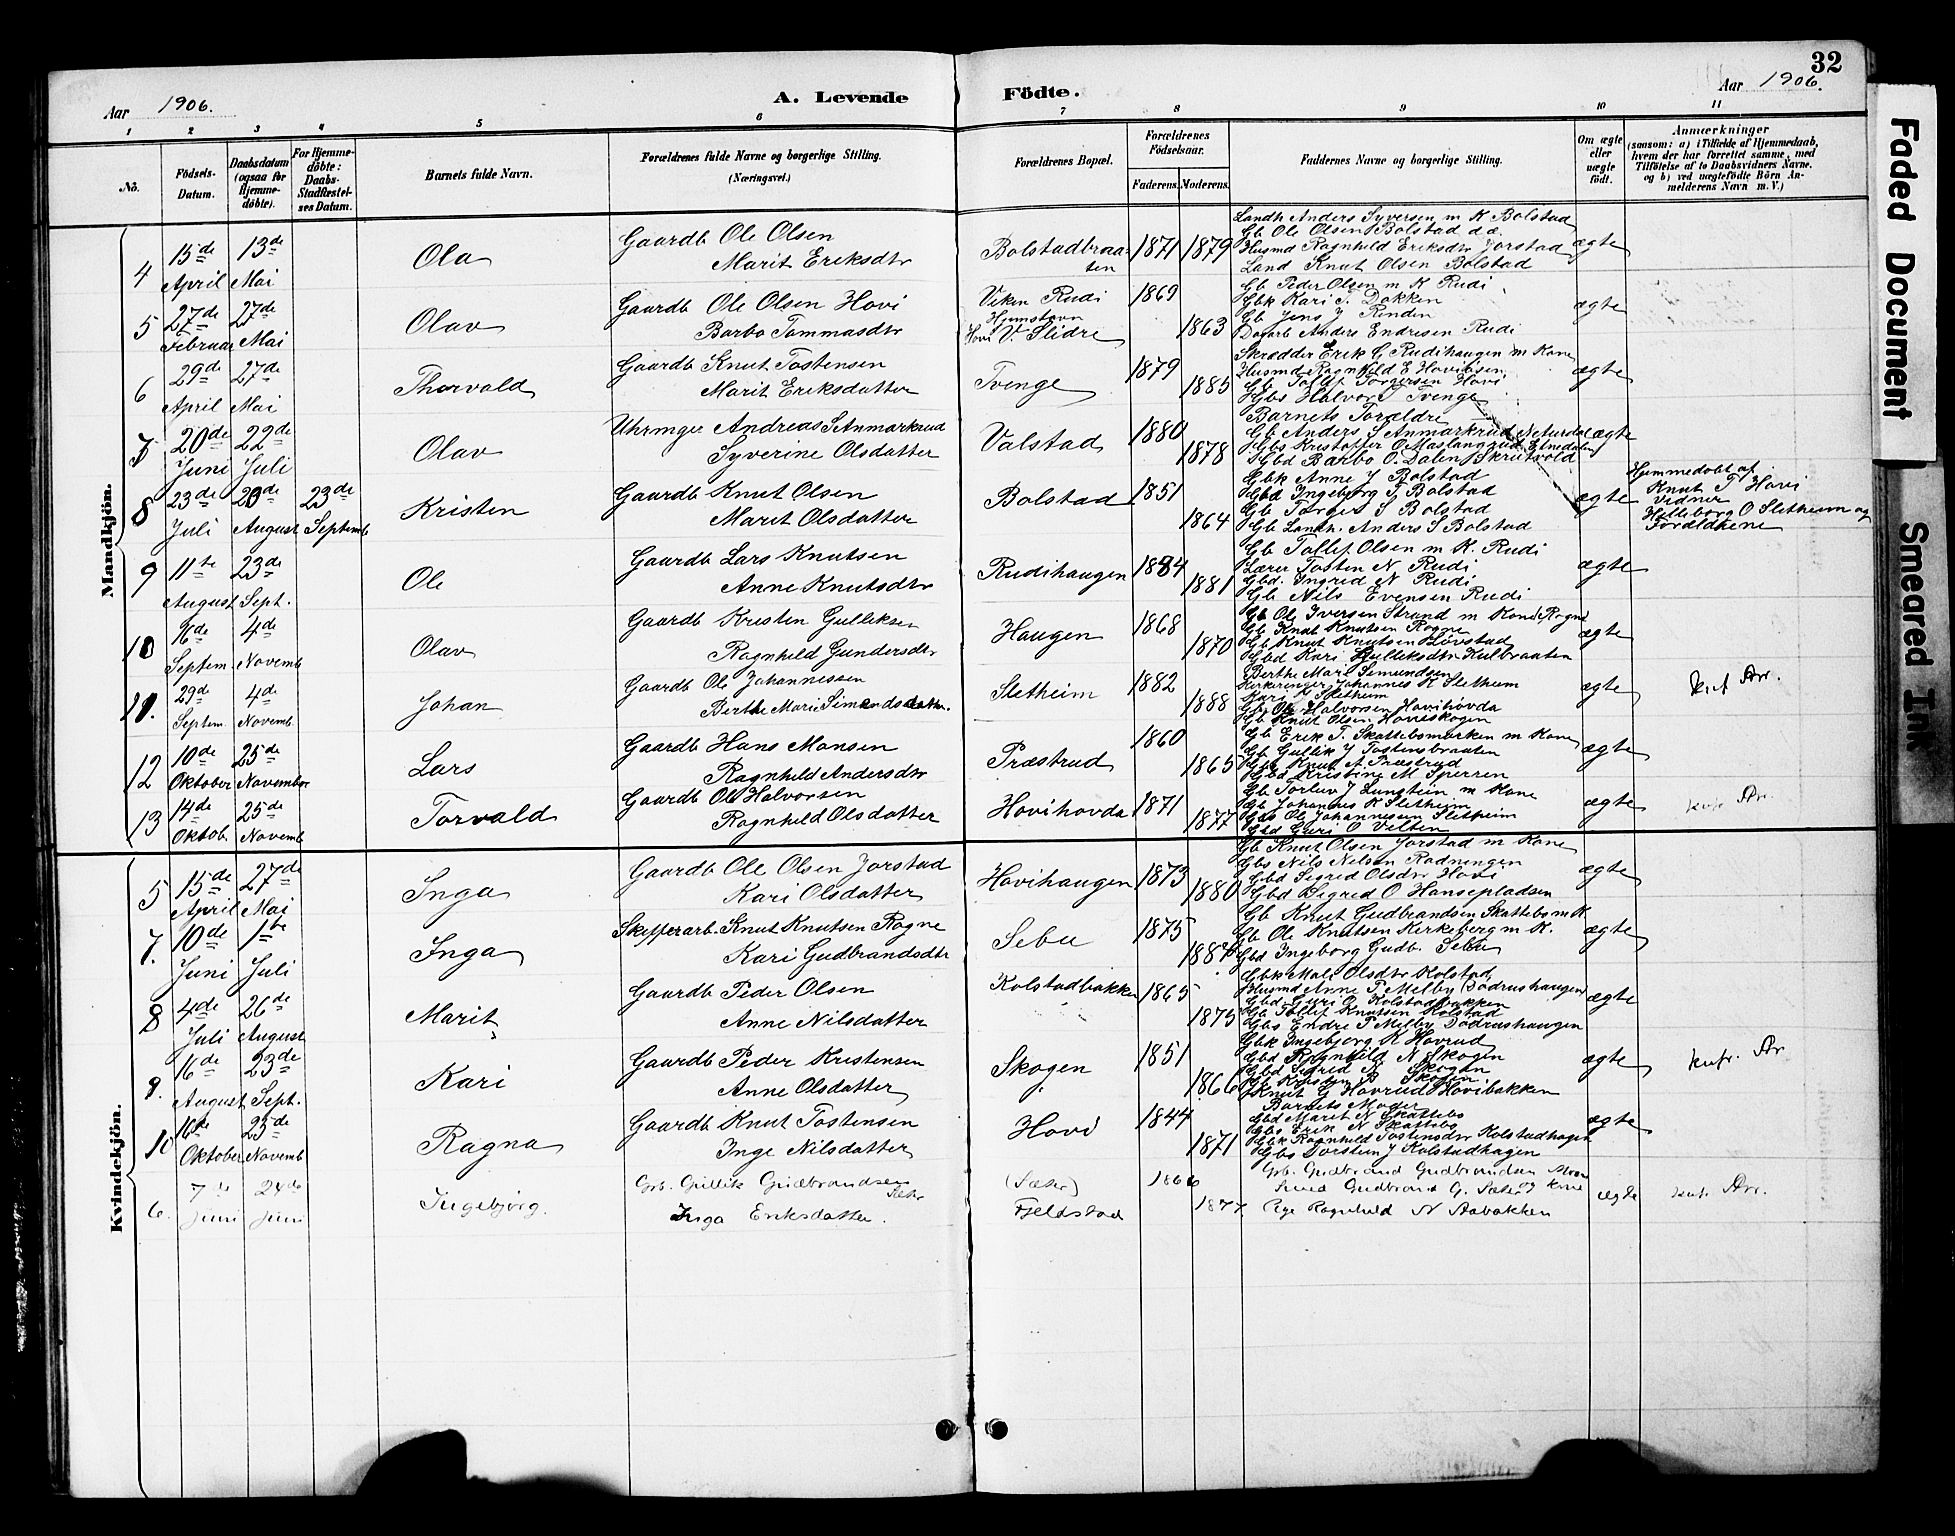 32
Aar 1906.
A. Levende Födte.
Aar 1906.
1 2 3 4 5 6 7 8 9 10 11
Nò.
Födsels-Datum.
Daabsdatum (ogsaa for Hjemme-döbte).
For Hjemme-döbte: Daabs-Stadfæstel-ses Datum.
Barnets fulde Navn.
Forældrenes fulde Navne og borgerlige Stilling. (Næringsvei.)
Forældrenes Bopæl.
Forældrenes Födselsaar.
Faderens. Moderens.
Faddernes Navne og borgerlige Stilling.
Om ægte eller uægte født.
Anmærkninger
(saasom: a) i Tilfælde af Hjemmedaab, hvem der har forrettet samme, med Tilföielse af to Daabsvidners Navne, og b) ved uægtefödte Börn An-melderens Navn m. V.)
Mandkjön.
4 15de April 13de Mai Ola
Gaardb Ole Olsen
Marit Eriksdtr
Bolstadbraa-ten 1871 1879
Landh Anders Syversen m K Bolstad
Gb Ole Olsen Bolstad d.æ.
Husmd Ragnhild Eriksdtr Jorstad
Land Knut Olsen Bolstad
ægte
5 27de Februar 27de Mai Olav
Gaardb Ole Olsen Hovi
Barbo Tommasdtr
Viken Rudi
Hjemstavn
Hovi V. Slidre 1869 1863
Gb Peder Olsen m K Rudi
Gbk Kari T. Dokken
Gb Jens J Rinden
Dagarb Anders Endresen Rudi
ægte
6 29de April 27de Mai Thorvald
Gaardb Knut Tostensen
Marit Eriksdatter
Tvenge 1879 1885
Skrædder Erik G Rudihaugen m Kone
Husmd Ragnhild E Hovibisen
Gb Tollef Torgersen Hovi
Gbs Halvor T Tvenge
ægte
7 20de Juni 22de Juli Olav
Uhrmger Andreas S Anmarkrud
Syverine Olsdatter
Valstad 1880 1878
Barnets Forældre
Gb Anders S Anmarkrud
Gbs Kristoffer O
Gbd Barbo O. Dalen Skrutvold
ægte
8 23de Juli 26de August 23de Septemb Kristen
Gaardb Knut Olsen
Marit Olsdatter
Bolstad 1851 1864
Gbk Anne J Bolstad
Gbd Ingeborg T Bolstad
Gb Torger S Bolstad
Gb Landh. Anders S Bolstad
ægte
Hjemmedøbt af
Knut T Hovi
Vidner
Hilleborg O Sletheim og
Forældrene
9 11te August 23de Sept. Ole
Gaardb Lars Knutsen
Anne Knutsdtr
Rudihaugen 1884 1881
Gb Tollef Olsen m K. Rudi
Lærer Tosten N Rudi
Gbd. Ingrid N Rudi
Gb Nils Evensen Rudi
ægte
10 16de Septem. 4de Novemb Olav
Gaardb Kristen Gulliksen
Ragnhild Gundersdtr
Haugen 1868 1870
Gb Ole Iversen Strand m Kone Rogne
Gb Knut Knutsen Rogne
Gb Knut Knutsen Løvstad
Gbd Kari Gulliksdtr Kulbraaten
ægte
11. 29de Septem. 4de Novemb. Johan
Gaardb Ole Johannessen
Berthe Marie Simensdatter.
Sletheim 1882 1888
Berthe Mari Simundsen
Kirkesanger Johannes K Sletheim
Kari K Sletheim
Gb Ole Halvorsen Hovihovda
Gb Knut Olsen Hoviskogen
ægte
12 10de Oktober 25de November Lars
Gaardb Hans Monsen
Ragnhild Andersdtr
Præstrud 1860 1865
Gb Erik T. Skattebomarken m Kone
Gb Gullik J Tostensbraaten
Gbs Knut A Præstrud
Gbd Kristine M Sperren
ægte
13 14de Oktob. 25de Novemb Torvald
Gaardb Ole Halvorsen
Ragnhild Olsdatter
Hovihovda 1871 1877
Gb Torleiv J Lungstein m Kone
Gb Johannes K Sletheim
Gbs Ole Johannesen Sletheim
Gbd Guri O Velten
ægte
Kvindekjön.
5 15de April 27de Mai Inga
Gaardb Ole Olsen Jorstad
Kari Olsdatter
Hovihaugen 1873 1880
Gb Knut Olsen Jorstad m Kone
Gbs Nils Nelsen Rudningen
Gbd Sigrid Olsdtr Hovi
Gbd Sigrid O Hansepladsen
ægte
7. 10de Juni 1te Juli Inga
Skifferarb. Knut Knutsen Rogne
Kari Gudbrandsdtr
Sebu 1875
Gb Knut Gudbrandsen Skattebo m K
Gb Ole Knutsen Kirkeberg m K.
Gbd Ingeborg Gudb. Sebu
ægte
8 4de Juli 26de August Marit
Gaardb Peder Olsen
Anne Nilsdatter
Kolstadbakken 1865 1875
Gbk Mali Olsdtr Kolstad
Husmd Anne P Melby Dödrushaugen
Gbd Guri O Kolstadbakken
Gb Tollef Knutsen Kolstad
Gbs Endre P Melby Dödrushaugen
ægte
9. 16de August 23de Sept. Kari
Gaardb Peder Kristensen
Anne Olsdatter
Skogen 1851 1866
Gbk Ingebjorg K Hovrud
Gbd Ragnhild N Skogen
Gbd Sigrid N Skogen
Gb Kristen P Skogen
Knut G Hovrud Hovibakken
ægte
10 16de Oktober 25de Novemb Ragna
Gaardb Knut Tostensen
Inge Nilsdatter
Hovi 1844 1871
Barnets Moder
Gbd Marit N Skattebo
Gbs Erik N Skattebo
Gbk Ragnhild Tostensdtr Kolstadhagen
Gbs Torstein J Kolstadhagen
ægte
6. 7de Juni 24de Juni Ingebjörg.
Grb. Gullik Gudbrandsen Sæter
Inga Eriksdatter.
(Sæter)
Fjeldstad 1866 1877.
Grb. Gudbrand Gudbrandsen
Gudbrand G. Sæter og Kone
Pige Ragnhild N Aabakken
ægte
Faded Document
Smeared Ink